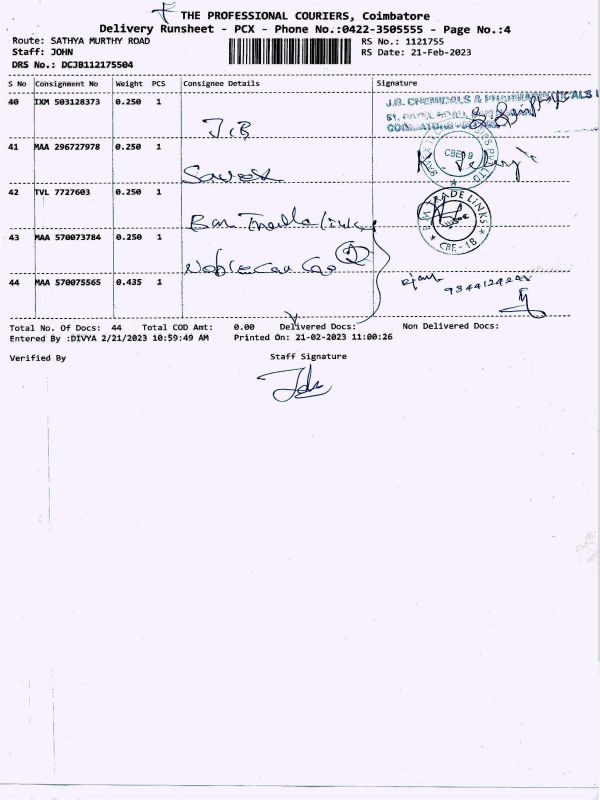 THE PROFESSIONAL COURIERS, Coimbatore
Delivery Runsheet - PCX - Phone No.:0422-3505555 - Page No.:4
Route: SATHYA MURTHY ROAD
Staff: JOHN
DRS No.: DCJB112175504
RS No.: 1121755
RS Date: 21-Feb-2023
S No Consignment No Weight PCS Consignee Details Signature
40 IXM 503128373 0.250 1
JCB
J.B. CHEMICALS & PHARMACEUTICALS
41 MAA 296727978 0.250 1
CBE 9
PVT LTD
42 TVL 7727603 0.250 1
B M TRADE LINKS
CBE - 18
43 MAA 570073784 0.250 1
44 MAA 570075565 0.435 1
Total No. Of Docs: 44 Total COD Amt: 0.00 Delivered Docs: Non Delivered Docs:
Entered By :DIVYA 2/21/2023 10:59:49 AM Printed On: 21-02-2023 11:00:26
Verified By Staff Signature